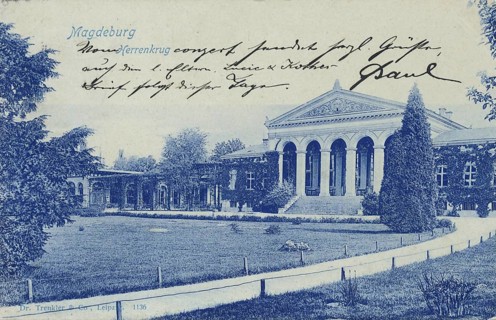 Magdeburg
Herrenkrug
Vom concert sendet herzl. Grüße,
auch an d. l. Eltern, Lucie &
Brief folgt dieser Tage. Paul
Dr. Trenkler & Co., Leipzig. 1136